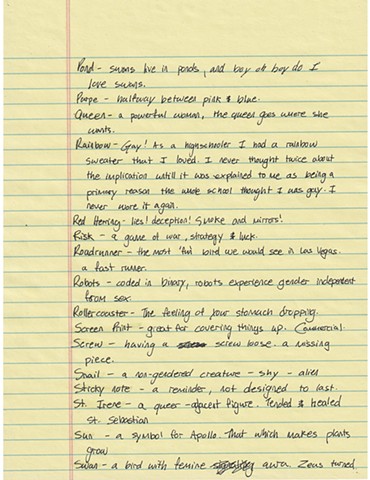 Pond - swans live in ponds, and boy oh boy do I
love swans.
Purpe - halfway between pink & blue.
Queen - a powerful woman, the queen goes where she
wants.
Rainbow - Gay! As a highschooler I had a rainbow
sweater that I loved. I never thought twice about
the implication untill it was explained to me as being a
primary reason the whole school thought I was gay. I
never wore it again.
Red Herring - lies! deception! Smoke and mirrors!
Risk - a game of war, strategy & luck.
Roadrunner - the most 'fun' bird we would see in Las Vegas.
a fast runner.
Robots - coded in binary, robots experience gender independent
from sex.
Rollercoaster - The feeling of your stomach dropping.
Screen Print - great for covering things up. Commercial.
Screw - having a screw loose. a missing
piece.
Snail - a non-gendered creature - shy - alien
Sticky note - a reminder, not designed to last.
St. Irene - a queer-adjacent figure. Tended & healed
St. Sebastian
Sun - a symbol for Apollo. That which makes plants
grow
Swan - a bird with femine aura. Zeus turned